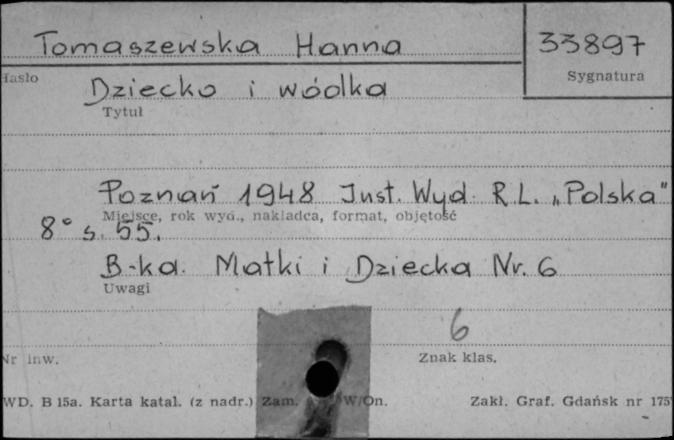 Tomaszewska Hanna 33897
Hasło Sygnatura
Dziecko i wódka
Tytuł
Poznań 1948 Inst. Wyd. R.L. „Polska"
Miejsce, rok wyd., nakładca, format, objętość
8° s. 55.
B-ka. Matki i Dziecka Nr. 6
Uwagi
6
Nr inw. Znak klas.
WD. B 15a. Karta katal. (z nadr.) Zam. W/On. Zakł. Graf. Gdańsk nr 175